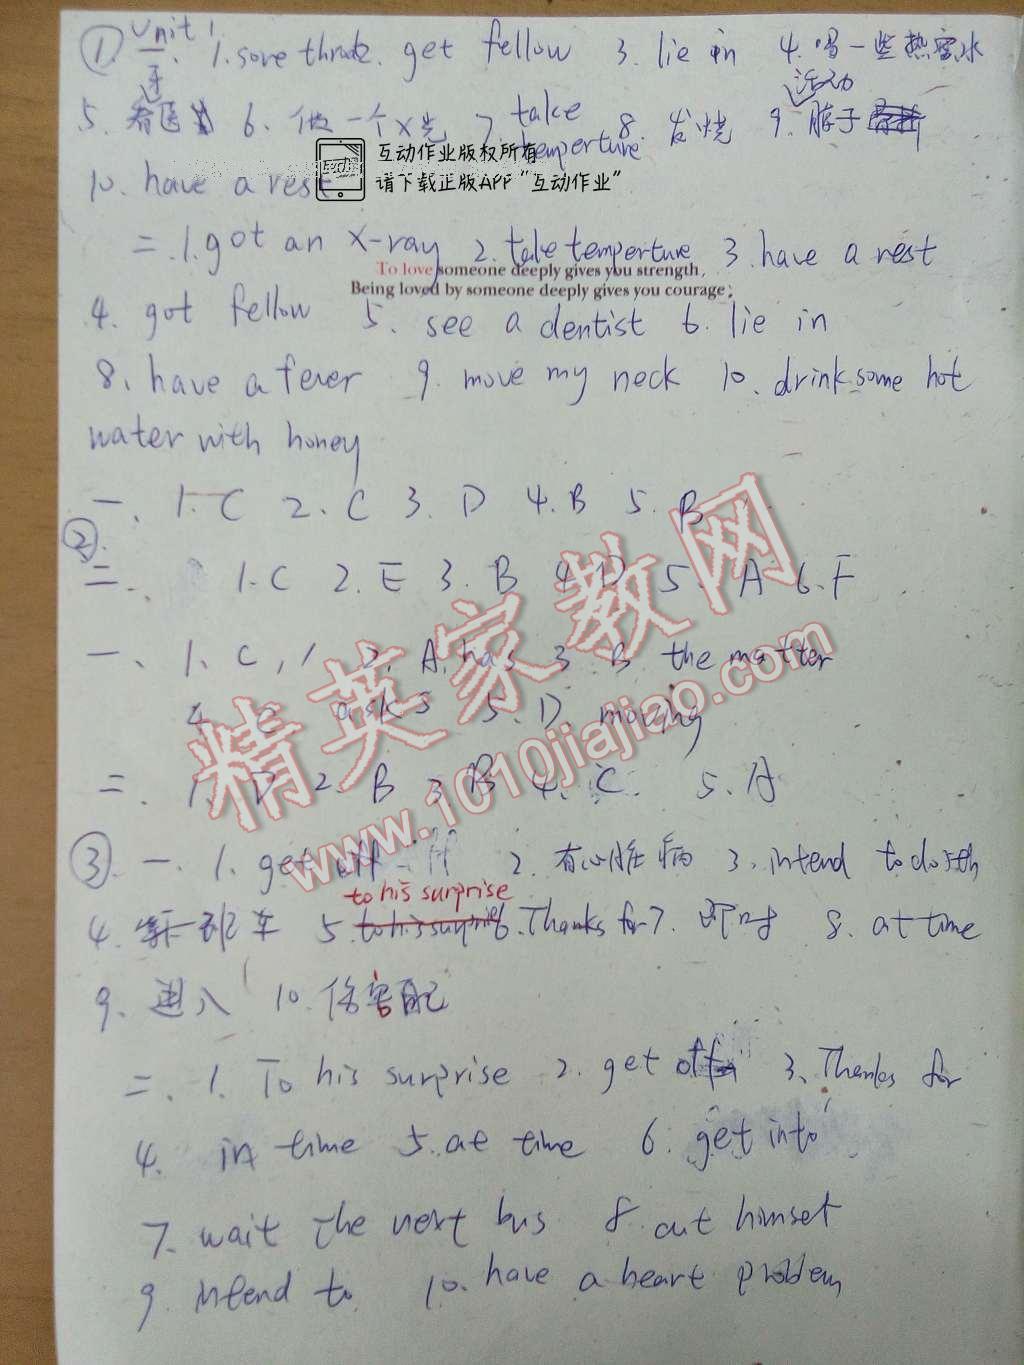 ① Unit 1
一. 1. sore throde. get fellow 3. lie in 4. 喝一些热蜜水
5. 看牙医 6. 做一个X光 7. take temperture 8. 发烧 9. 活动脖子
互动作业版权所有
请下载正版APP“互动作业”
10. have a rest
二. 1. got an X-ray 2. take temperture 3. have a rest
To love someone deeply gives you strength,
Being loved by someone deeply gives you courage;
4. got fellow 5. see a dentist 6. lie in
8. have a fever 9. move my neck 10. drink some hot
water with honey
② 一、1. C 2. C 3. D 4. B 5. B
二. 1. C 2. E 3. B 4. D 5. A 6. F
一、1. C, 2. A. has 3 B. the matter
4. C asks 5. D. moving
二. 1. D 2. B 3. B 4. C. 5. A
精英家教网
www.1010jiajiao.com
③ 一. 1. get off 2. 有心脏病 3. intend to do sth
to his surprise
4. 车 5. to his surprise 6. Thanks for 7. 即时 8. at time
9. 进入 10. 伤害自己
二. 1. To his surprise 2. get off 3. Thanks for
4. in time 5. at time 6. get into
7. wait the next bus 8. cut himself
9. intend to 10. have a heart problem